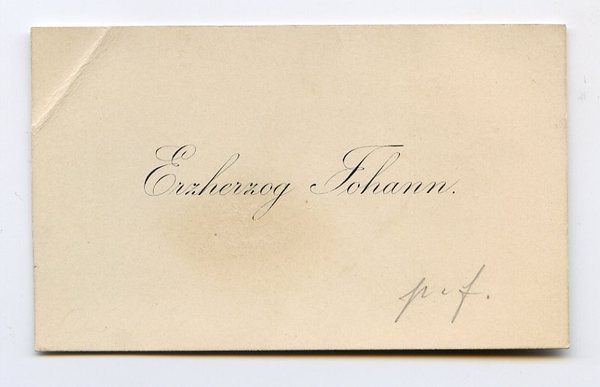 Erzherzog Johann.
p. f.